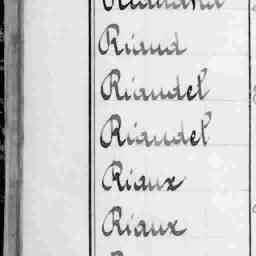 Riaud
Riaudel
Riaudel
Riaux
Riaux